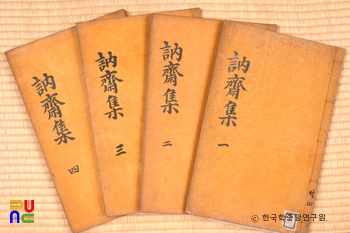 訥齋集 四
訥齋集 三
訥齋集 二
訥齋集 一
ⓒ 한국학중앙연구원